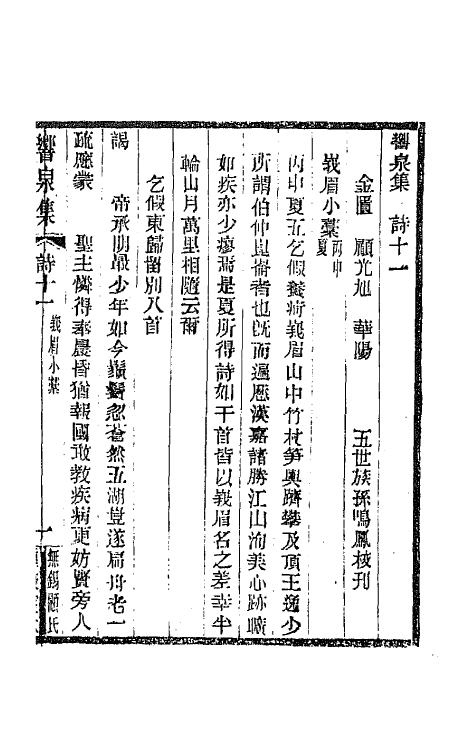 響泉集 詩十一
金匱 顧光旭 華陽 五世族孫鳴鳳校刊
峩眉小藁 丙申夏
丙申夏五乞假養疴峩眉山中竹杖笋輿躋攀及頂王逸少
所謂伯仲崑崙者也既而遍歷漢嘉諸勝江山洵美心跡曠
如疾亦少瘳焉是夏所得詩如干首皆以峩眉名之差幸半
輪山月萬里相隨云爾
乞假東歸留別八首
謁 帝承明最少年如今鬚鬢忽蒼然五湖豈遂扁舟老一
疏應蒙 聖主憐得奉晨昏猶報國敢教疾病更妨賢旁人
響泉集 詩十一 峩眉小藁 一 無錫顧氏